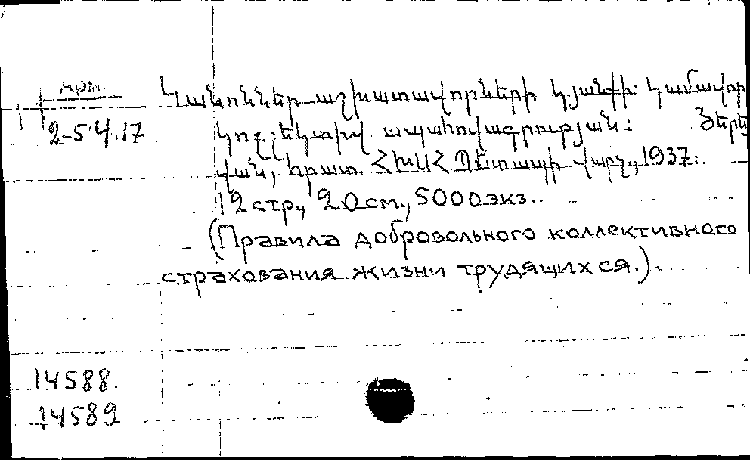 Арм.
2-5417
Կանոններ աշխատավորների կյանքի կամավոր
կոլլեկտիվ ապահովագրության: Յերե
վան, հրատ. ՀԽՍՀ Պետապի վարչ., 1937.
12 стр., 20 см., 5000 экз.
(Правила добровольного коллективного
страхования жизни трудящихся.).
14588.
14589